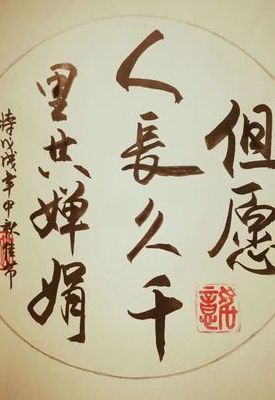 但愿
人長久千
里共婵娟
時戊戌年中秋佳节